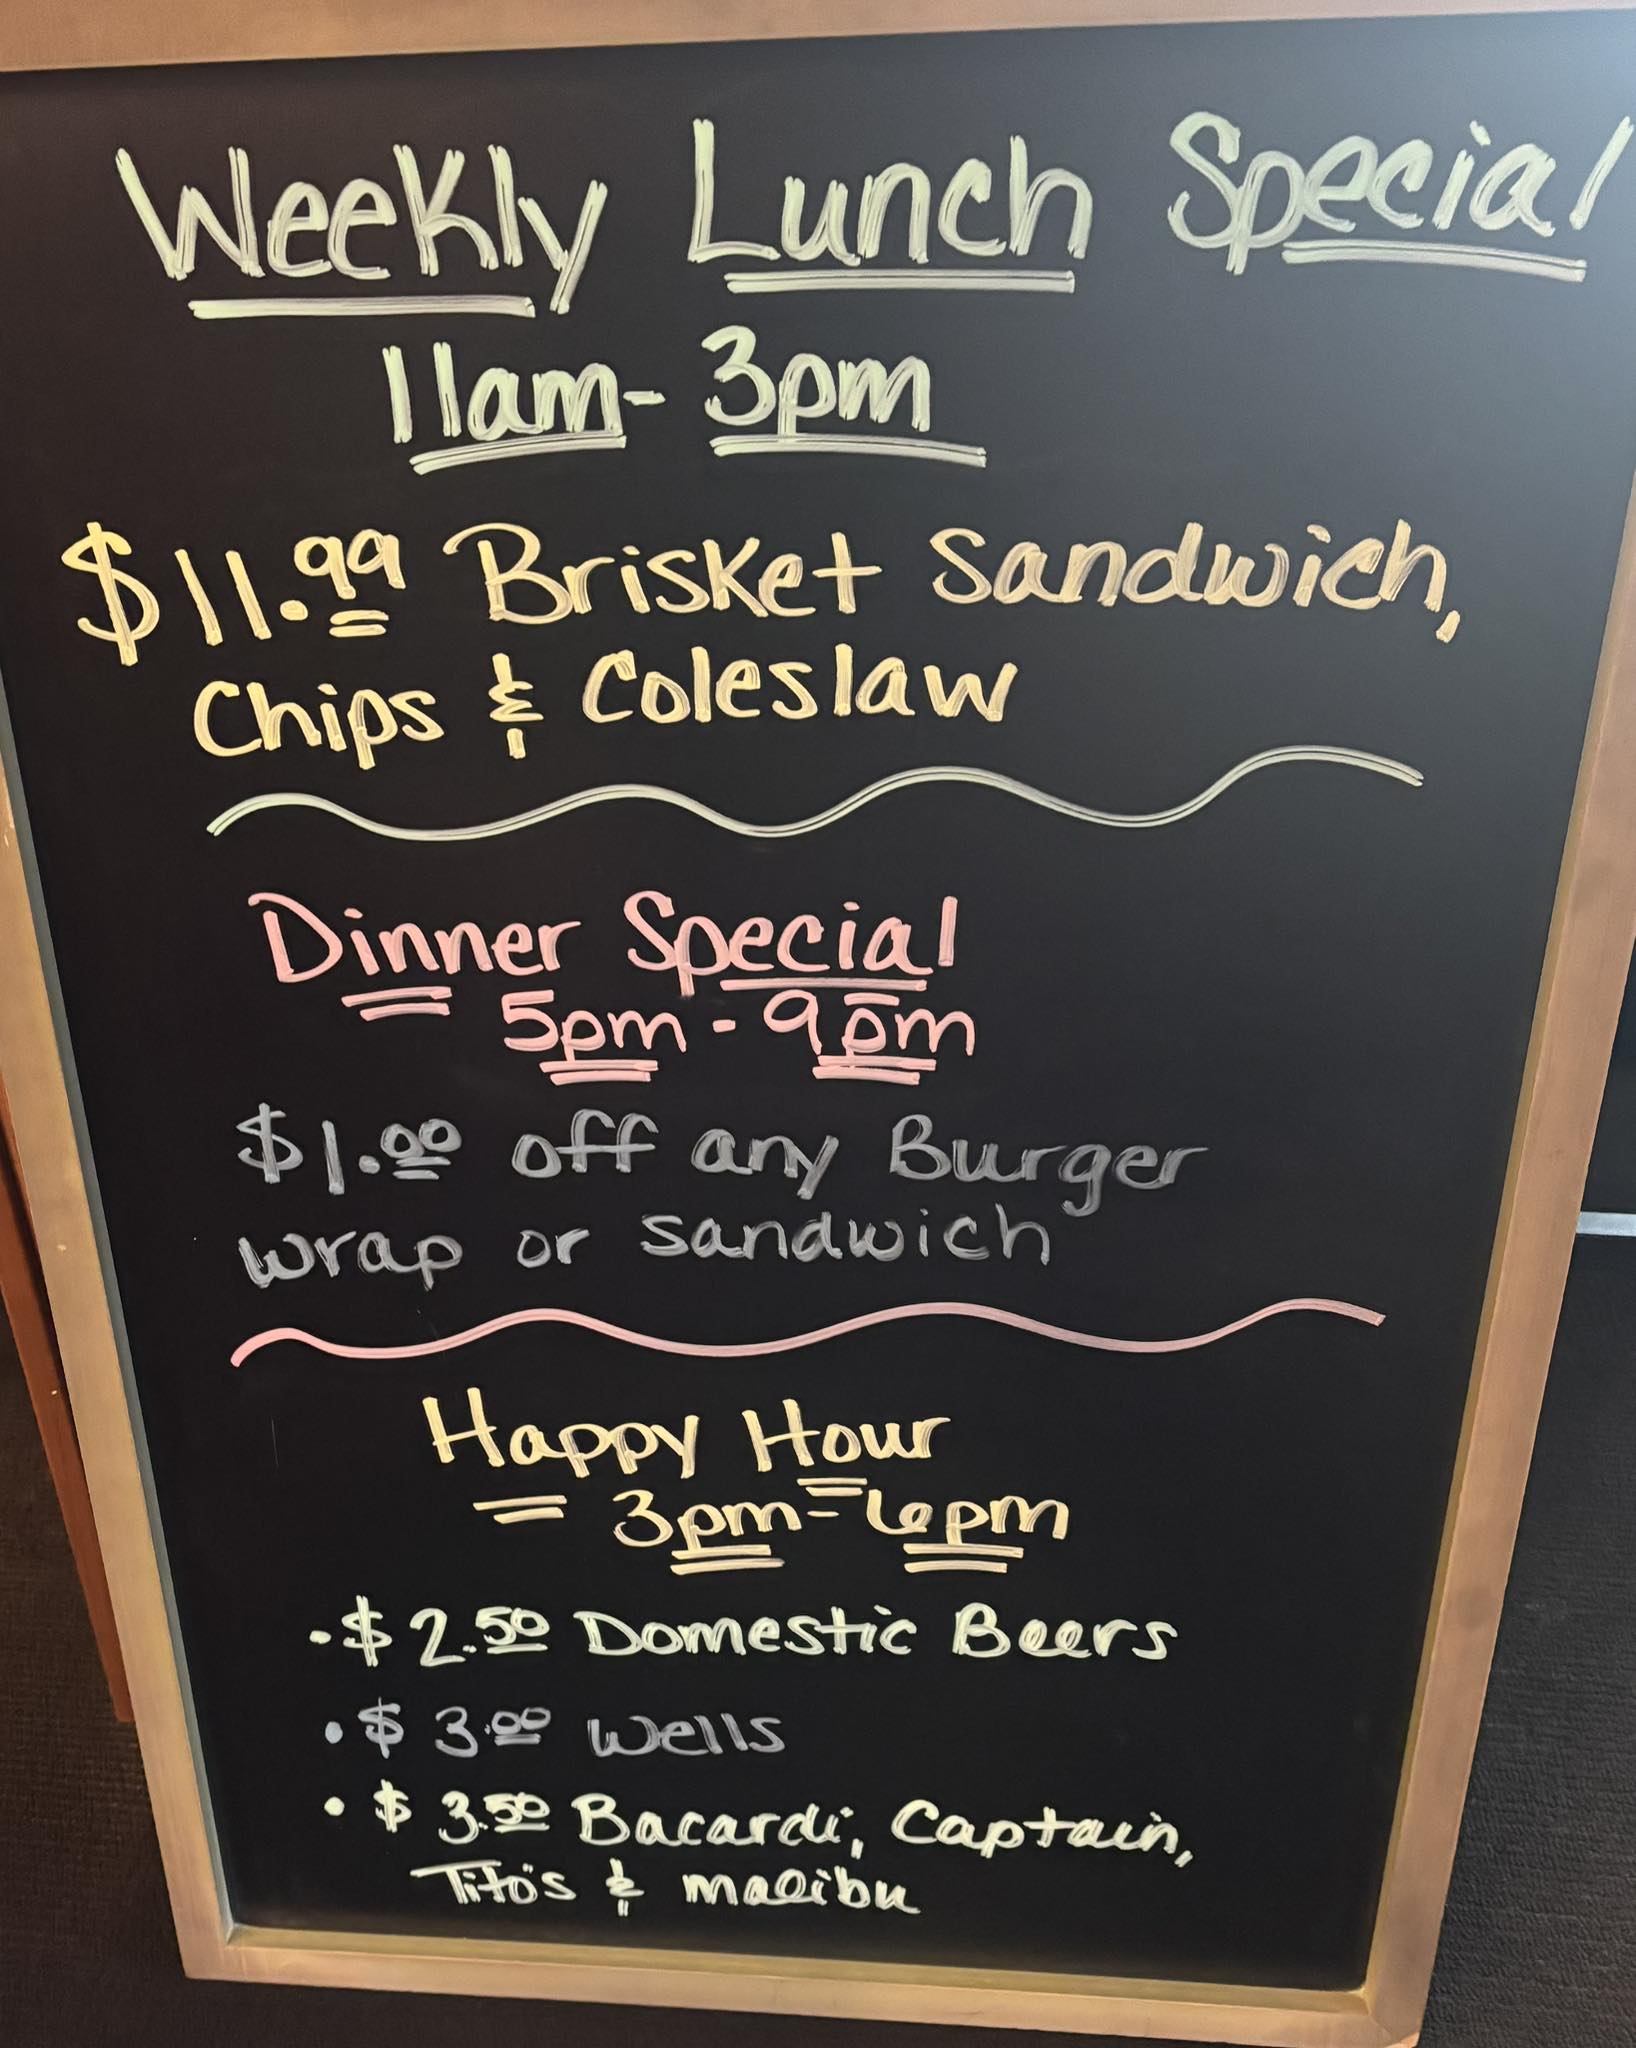 Weekly Lunch Special
11am - 3pm
$11.99 Brisket Sandwich,
Chips & Coleslaw
Dinner Special
5pm - 9pm
$1.00 off any Burger
wrap or sandwich
Happy Hour
3pm - 6pm
• $2.50 Domestic Beers
• $3.00 Wells
• $3.50 Bacardi, Captain,
Tito's & malibu